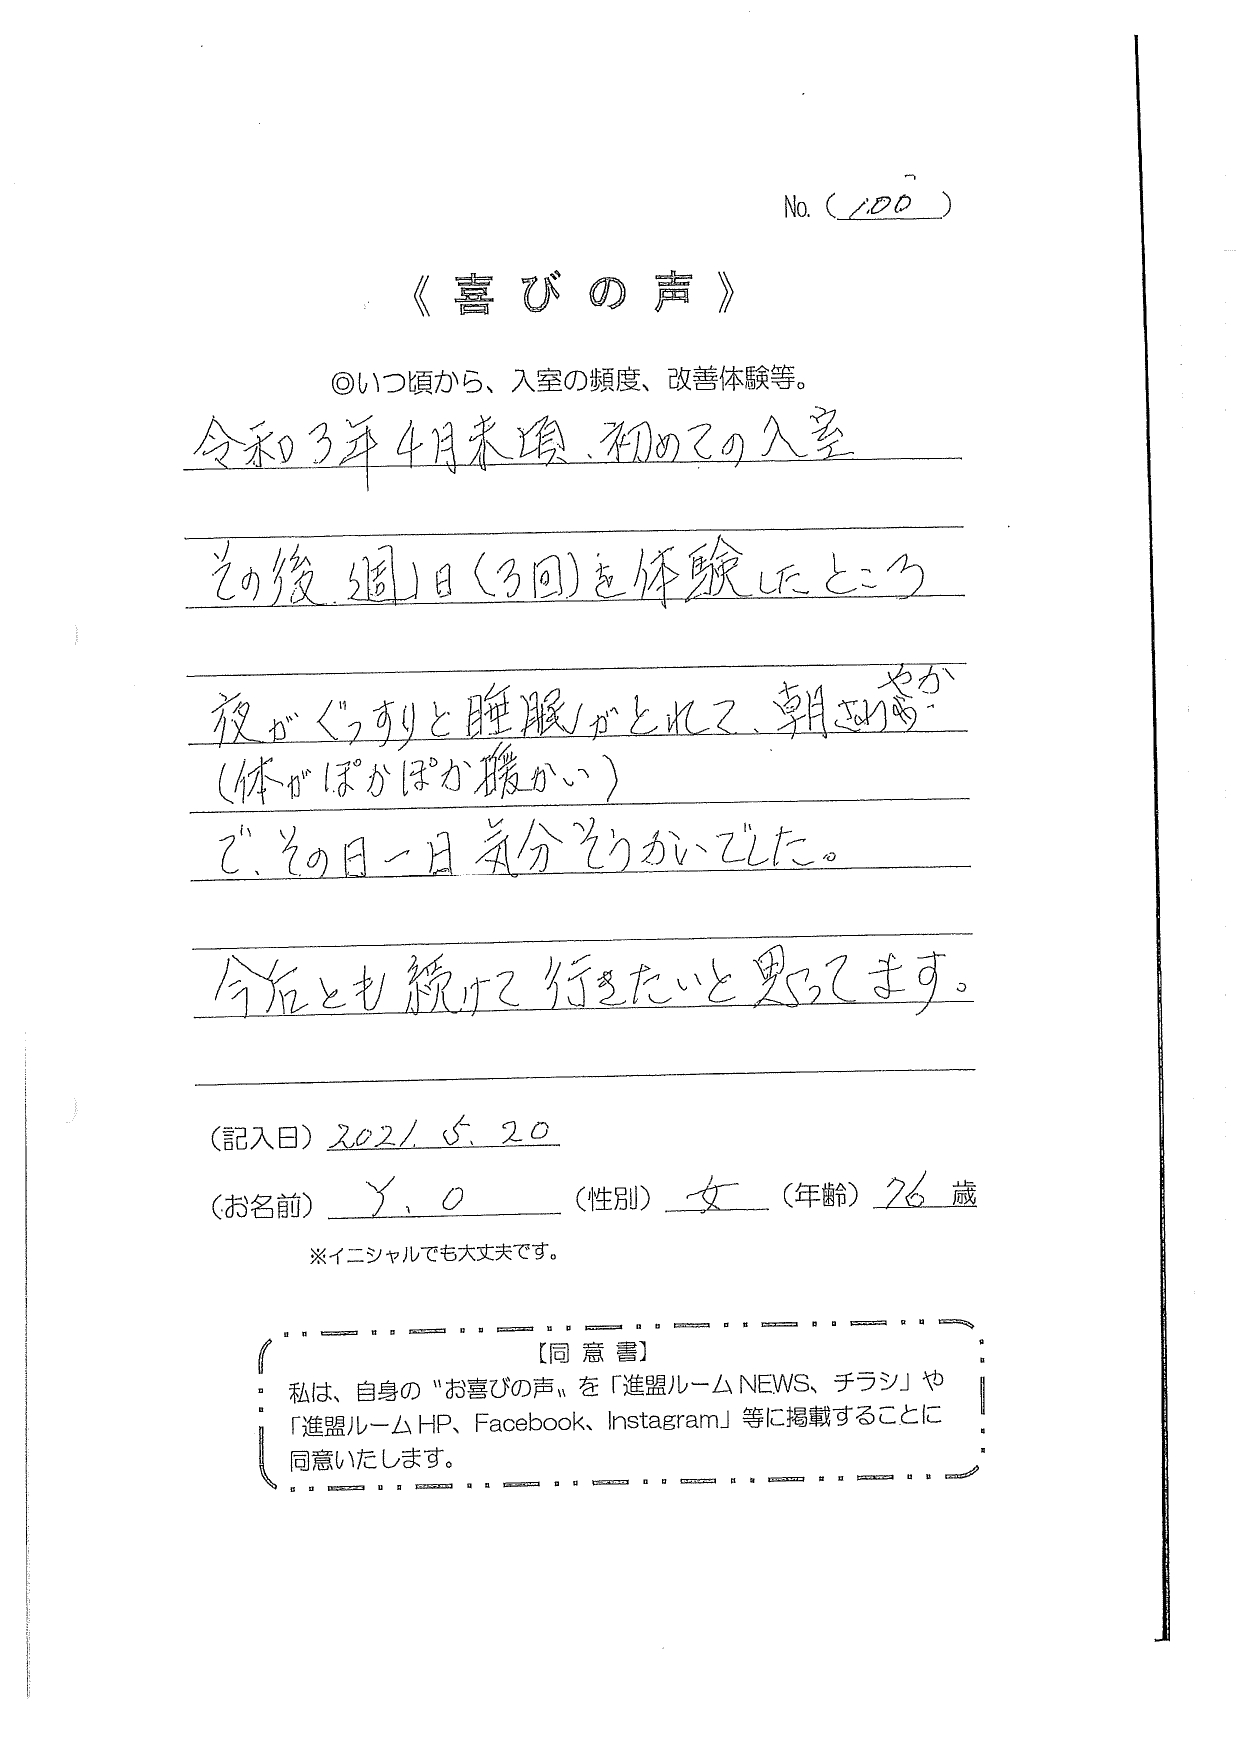 No.（100）
《喜びの声》
◎いつ頃から、入室の頻度、改善体験等。
令和3年4月末頃、初めての入室
その後、週1日（3回）を体験したところ
夜がぐっすりと睡眠がとれて、朝さわやか
（体がぽかぽか暖かい）
で、その日一日気分そうかいでした。
今后とも続けて行きたいと思ってます。
（記入日）2021.5.20
（お名前）Y.O（性別）女（年齢）76歳
※イニシャルでも大丈夫です。
【同意書】
私は、自身の〝お喜びの声〟を「進盟ルームNEWS、チラシ」や
「進盟ルームHP、Facebook、Instagram」等に掲載することに
同意いたします。